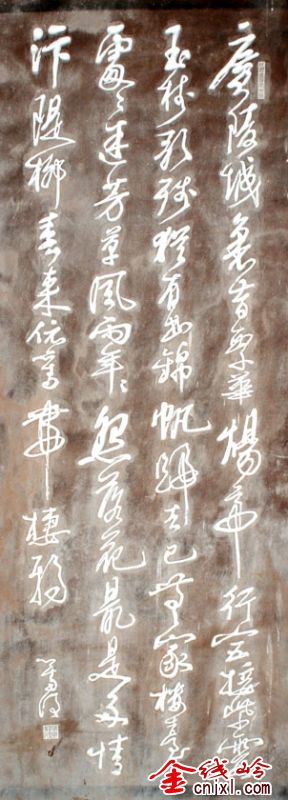 廣陵城裏昔繁華煬帝行宮接紫霞
玉樹歌殘猶有曲錦帆歸去已無家樓臺
處々迷芳草風雨年々怨落花最是多情
汴隄柳春來依舊帶棲鴉
金线岭
cnjxl.com